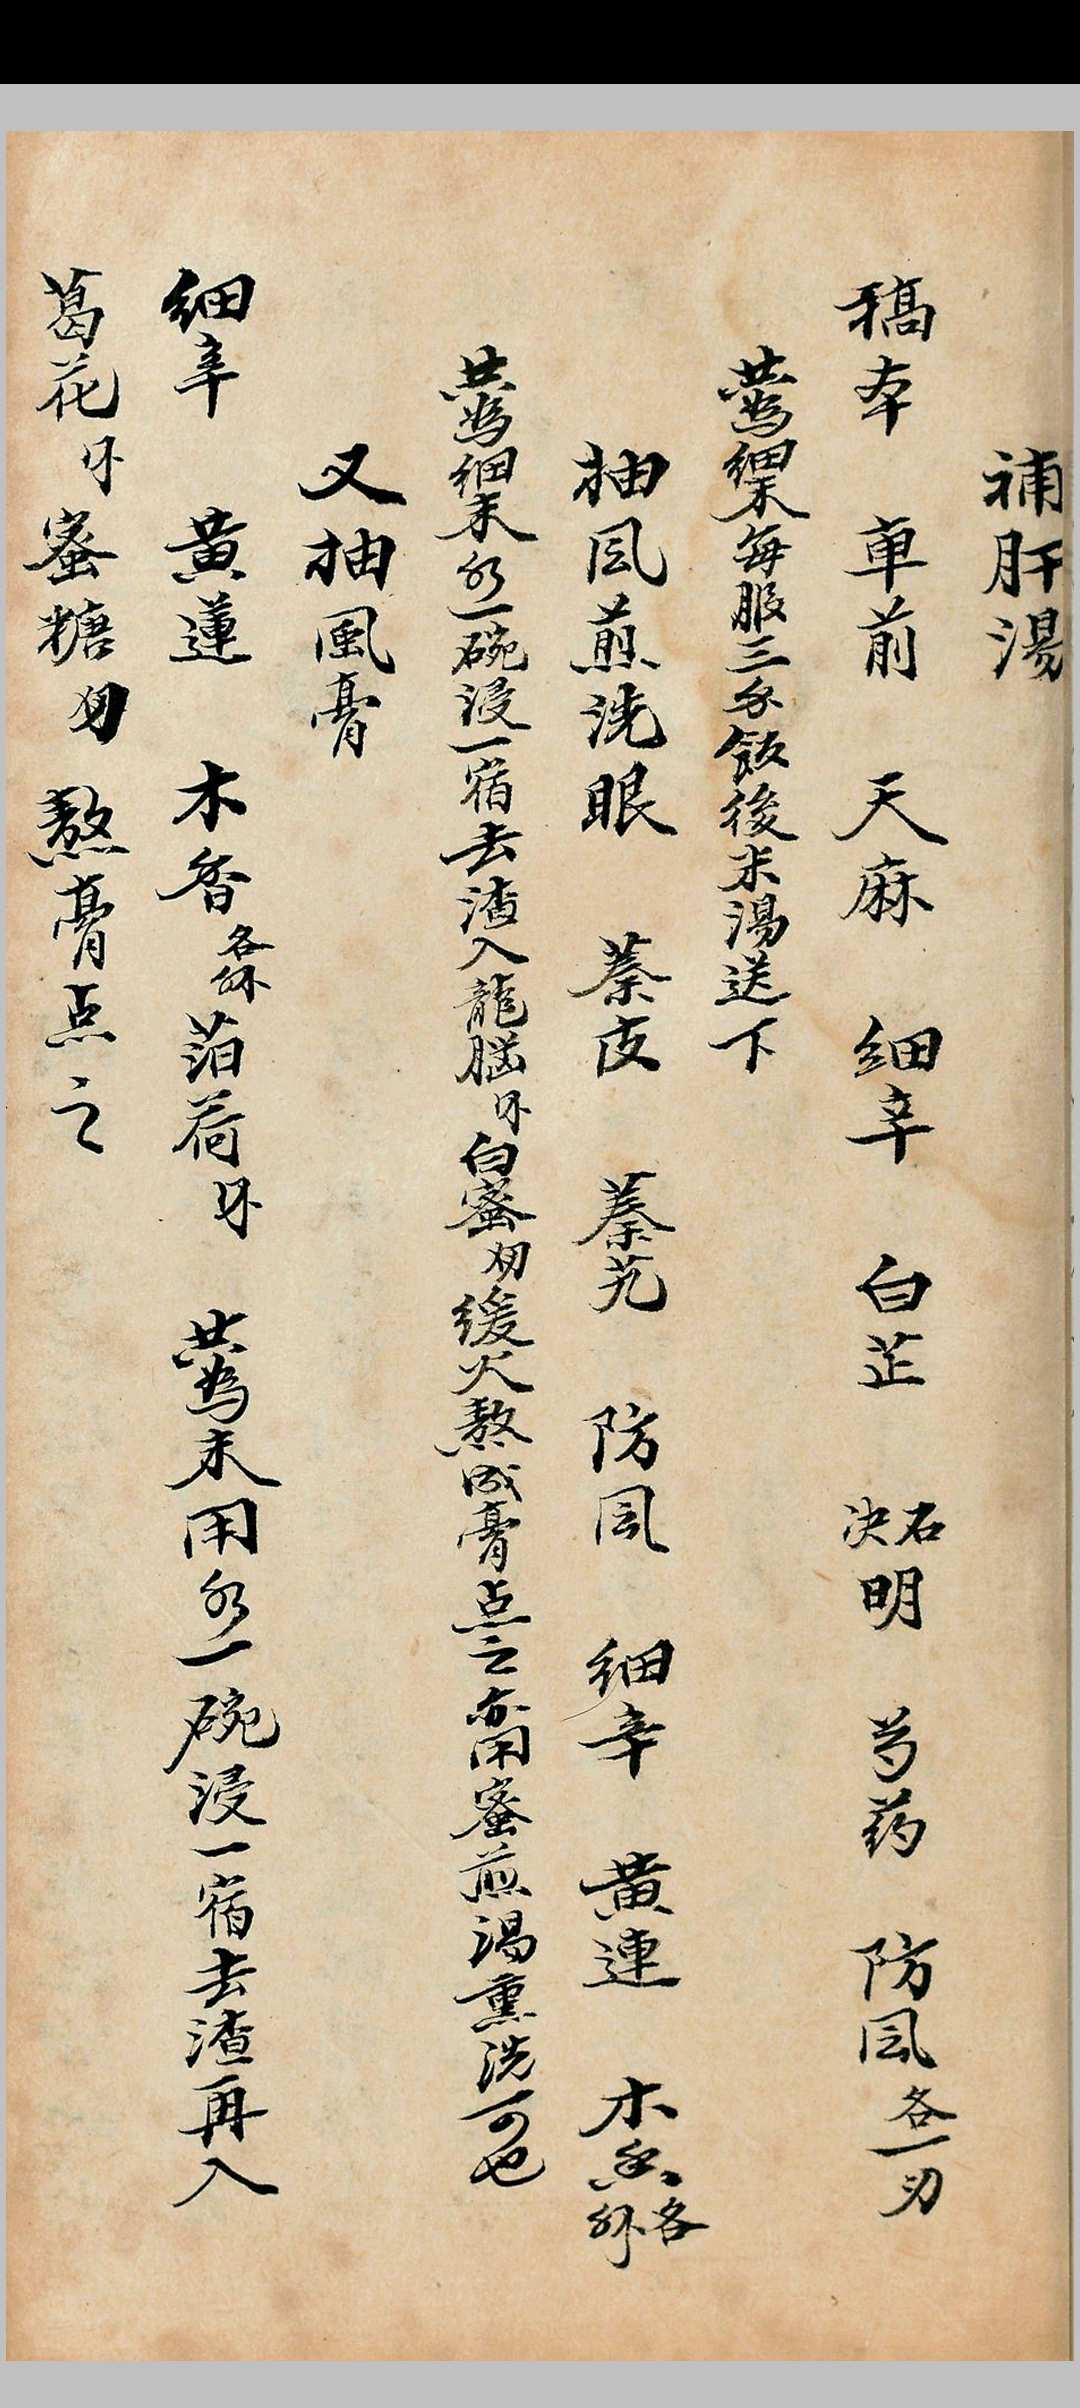 補肝湯
稿本 車前 天麻 細辛 白芷 石決明 芍药 防風各一刃
共為細末每服三分飯後米湯送下
抽風煎洗眼 蓁皮 蓁艽 防風 細辛 黄連 木香各
共為細末水一碗浸一宿去渣入龍脳 白蜜 緩火熬成膏点之亦用蜜煎湯熏洗可也
又抽風膏
細辛 黄蓮 木香各 泊荷 共為末用水一碗浸一宿去渣再入
葛花 蜜糖 熬膏点之